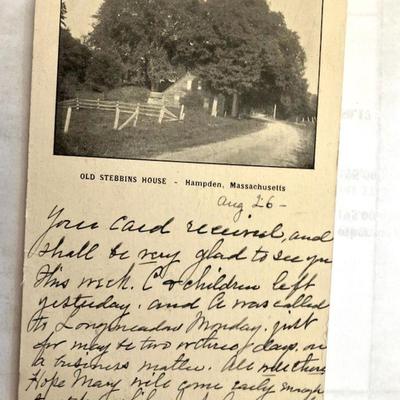 OLD STEBBINS HOUSE - Hampden, Massachusetts
Aug 26 -
Your card received, and
shall be very glad to see you
this week. C & children left
yesterday. and A was called
to Longmeadow Monday. just
for may be two or three days, on
a business matter. All well here
Hope Mary will come early enough